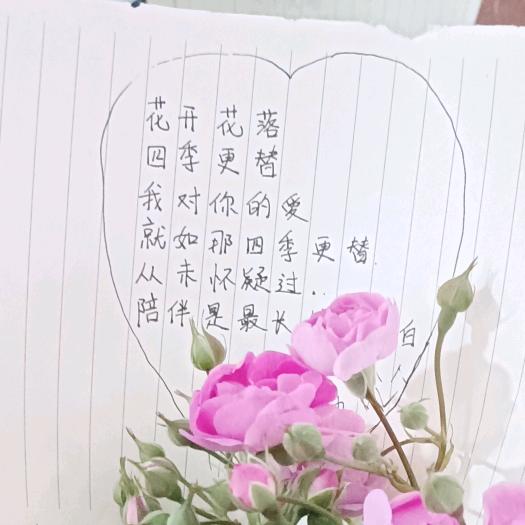 花开花落
四季更替
我对你的爱
就如那四季更替.
从未怀疑过..
陪伴是最长 白